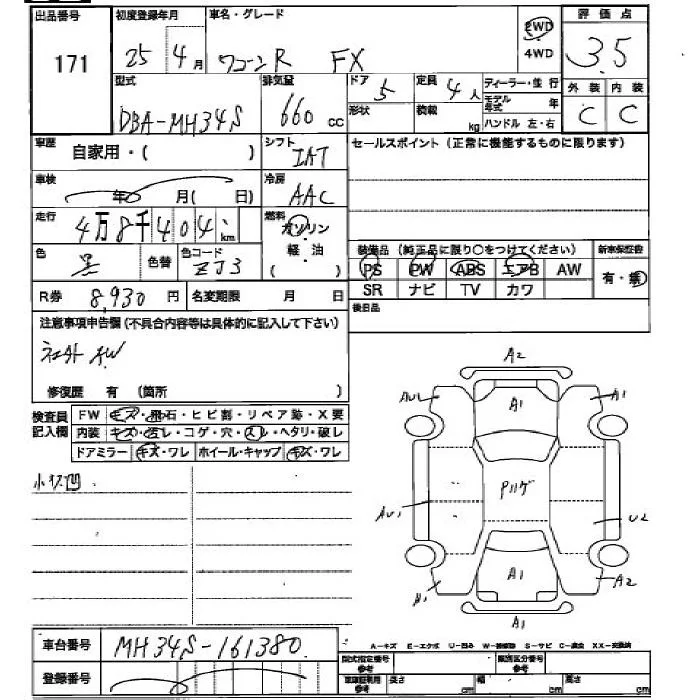 出品番号 初度登録年月 車名・グレード 2WD 4WD 評価点
171 25年4月 ワゴンR FX 3.5
型式 排気量 ドア 5 定員 4人 ディーラー・並行 外装 内装
DBA-MH34S 660cc 形状 積載 kg モデル年式 年 C C
ハンドル 左・右
車歴 自家用・( ) シフト IAT セールスポイント (正常に機能するものに限ります)
車検 年 月( 日) 冷房 AAC
走行 4万8千404km 燃料 ガソリン 軽・油 ( )
色 黒 色替 色コード ZJ3
装備品 (純正品に限り○をつけてください) 新車保証書
PS PW ABS エアB AW 有・無
SR ナビ TV カワ
R券 8,930円 名変期限 月 日 後日品
注意事項申告欄 (不具合内容等は具体的に記入して下さい)
社外AW
修復歴 有 (箇所 )
検査員記入欄 FW キズ・飛石・ヒビ割・リペア跡・X要
内装 キズ・汚レ・コゲ・穴・スレ・ヘタリ・破レ
ドアミラー キズ・ワレ ホイール・キャップ キズ・ワレ
小キズ凹
A2
AU1 A1 A1
Pハゲ
AU1 U2
A1 A1 A2
A1
A-キズ E-エクボ U-凹み W-補修跡 S-サビ C-腐食 XX-交換済
車台番号 MH34S-161380
登録番号
型式指定番号 参考 類別区分番号 参考
車庫証明用 参考 長さ cm 幅 cm 高さ cm